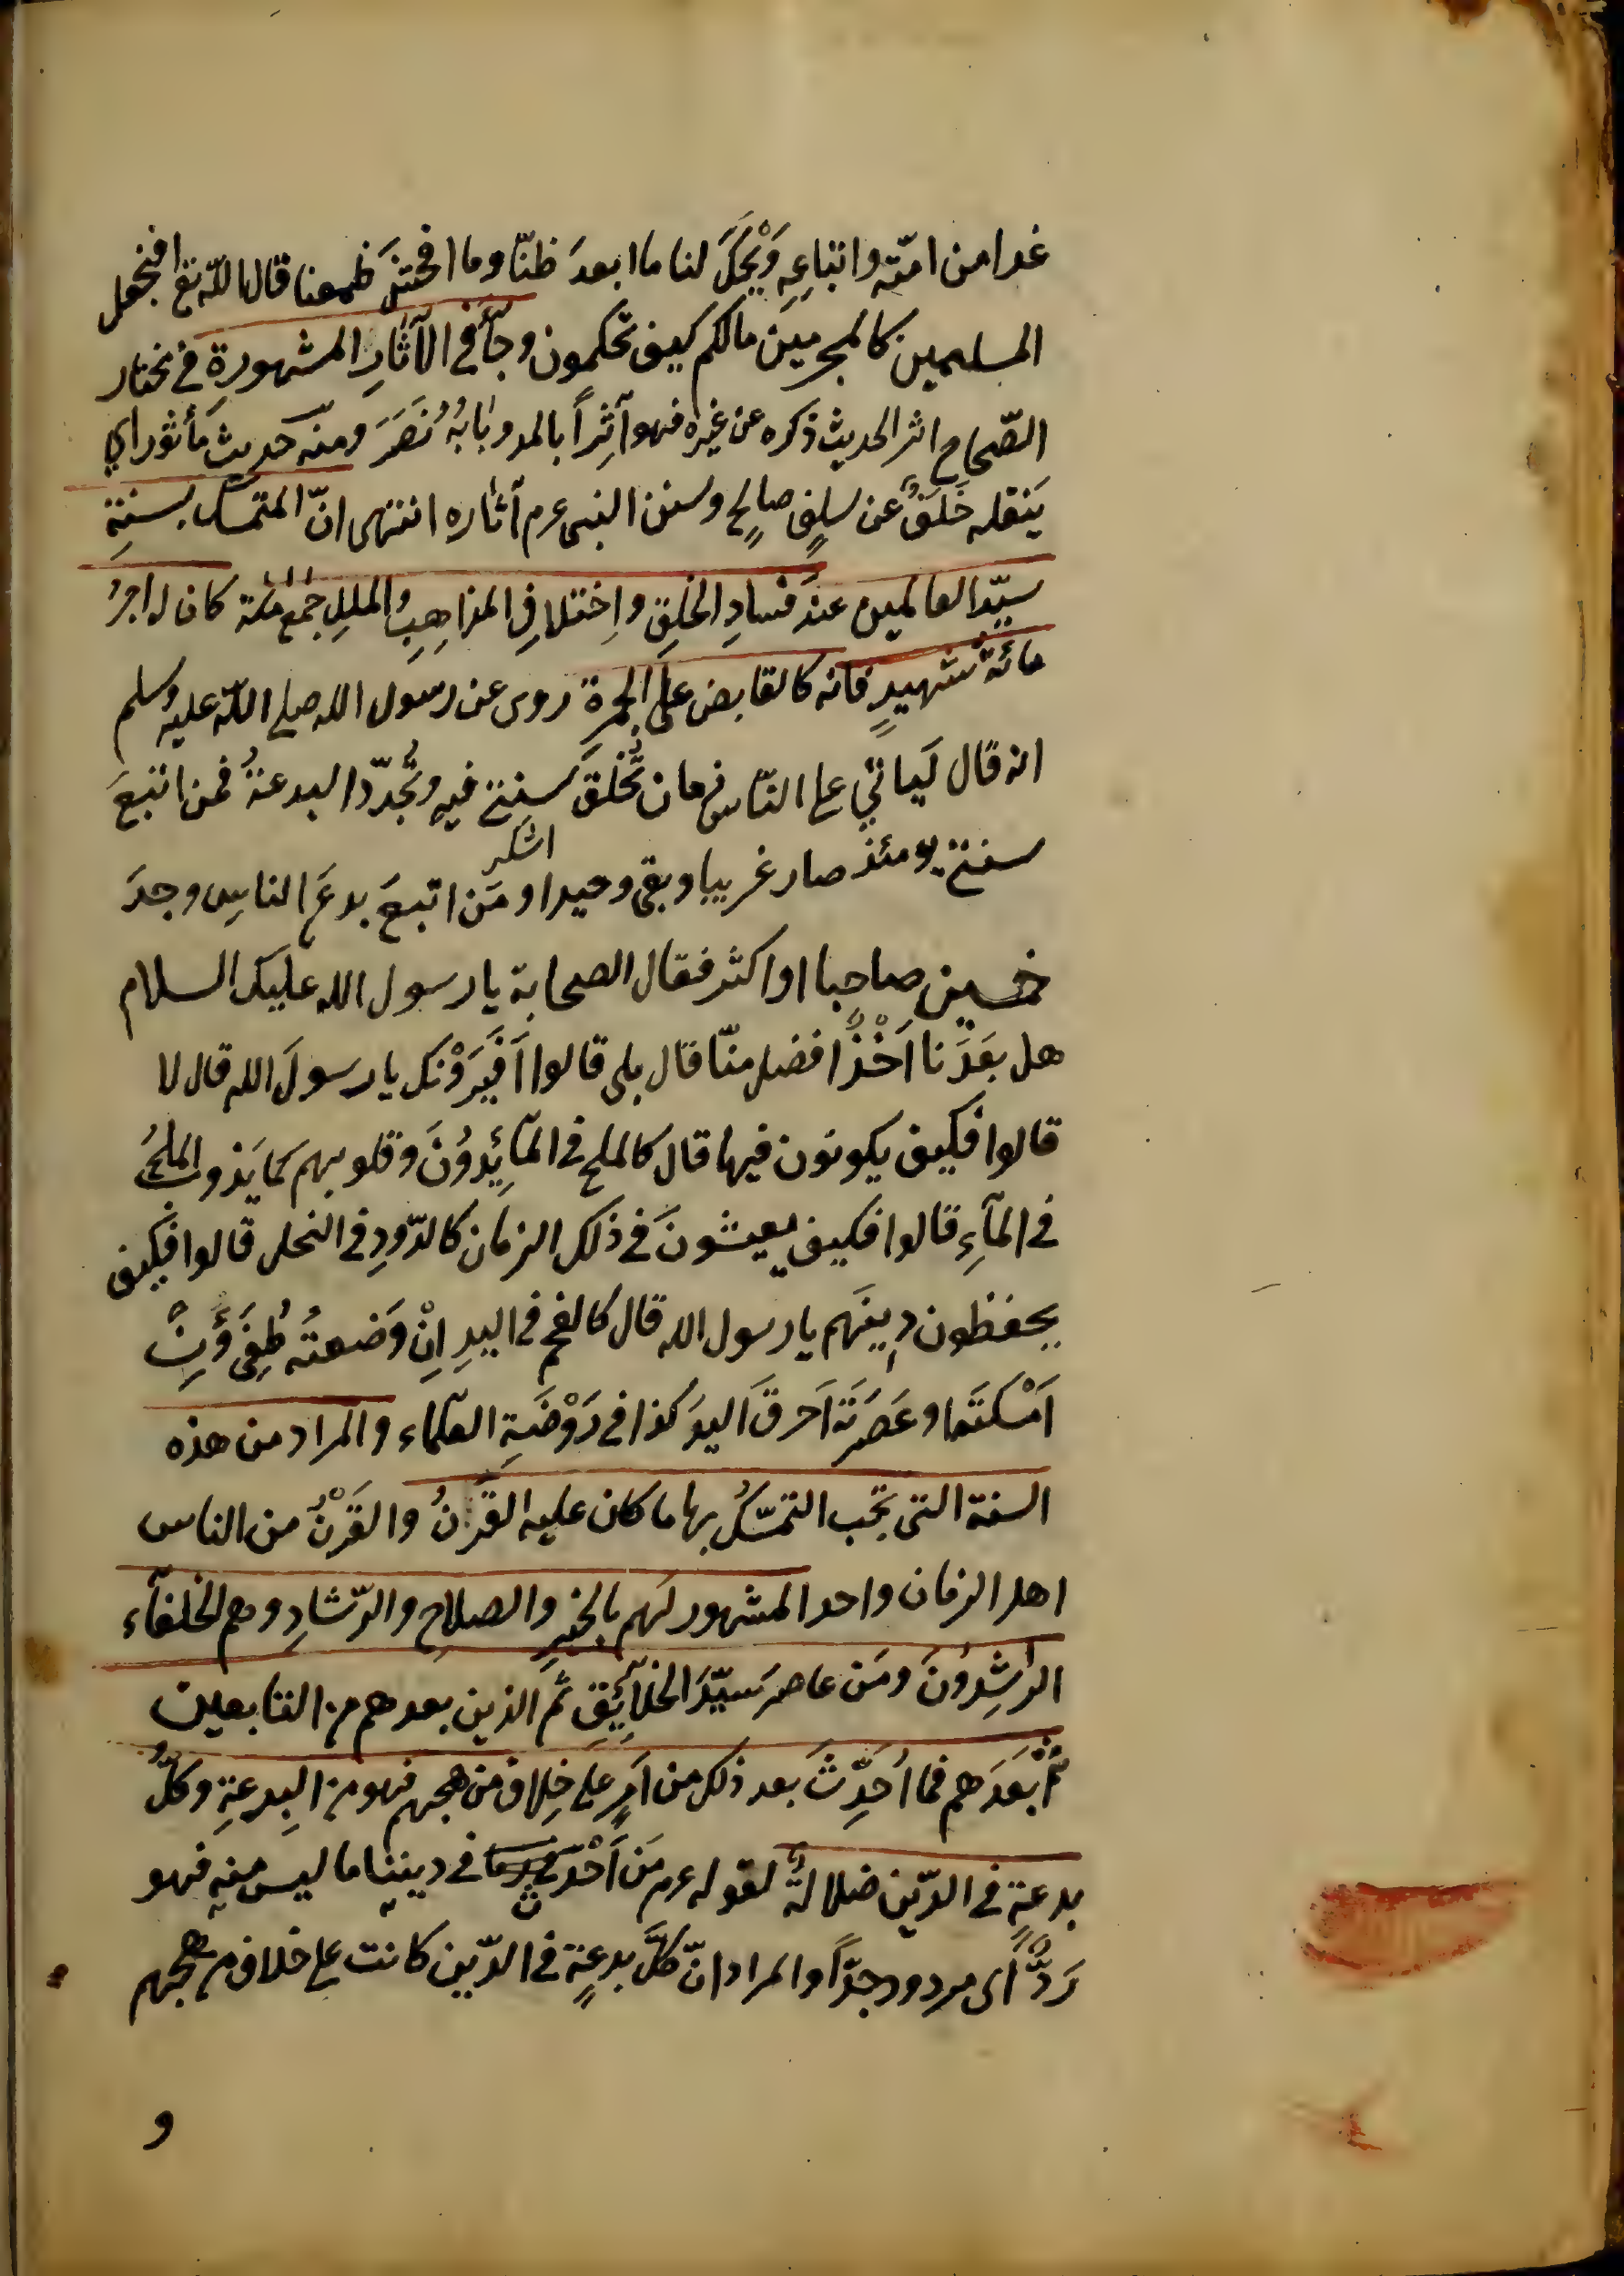 غدا من امّته واتباعِهِ وَيْحَكَ لنا ما ابعدَ ظنّا وما افحشَ طمعنا قال الله تع افنجعل
المسلمين كالمجرمين مالكم كيف تحكمون وجآء في الآثارِ المشهورةِ في مختار
الصّحاح اثر الحديث ذكره عن غيره فهو آثِراً بالمد وبابُهُ نَصَرَ ومنه حديث مأثور اي
يَنقله خَلَفٌ عن سلفٍ صالحٍ وسنن النبى عرم آثاره انتهى انّ المتمسك بسنةِ
سيّد العالمين عندَ فسادِ الخلقِ واِختلافِ المذاهِبِ والمللِ جمع ملة كان له اجرُ
مائة شهيدٍ فانه كالقابض على الجمرةِ روى عن رسول الله صلى الله عليه وسلم
انه قال لَياتي على النّاس زمان تُخلقُ سنتى فيه وتُجدّد البدعةُ فمن اتبعَ
سنتى يومئذ صار غريبا وبقى وحيدا ومَن اتبعَ بدعَ الناسِ وجدَ
خمسين صاحبا او اكثر فقال الصحابة يا رسول الله عليك السلام
هل بَعدَنا اَحَدٌ افضل منّا قال بلى قالوا اَفَيَرَوْنَك يا رسولَ الله قال لا
قالوا فكيف يكونون فيها قال كالملح فى المآء يَذُوبُ قلوبهم كما يَذوب الملحُ
فى المآءِ قالوا فكيف يعيشونَ فى ذلك الزمان كالدّودِ فى الخل قالوا فكيف
يحفظون دِينَهم يا رسول الله قال كالفحم فى اليدِ اِنْ وَضعتَه طُفِئَ وَاِنْ
اَمْسَكتَه او عَصَرتَه اَحرقَ اليدَ كذا فى رَوْضَةِ العلماء والمراد من هذه
السنة التى يَجب التمسّكُ بها ما كان عليه القَرنُ والقَرْنُ من الناس
اهل الزمان واحد المشهور لهم بالخيرِ والصلاحِ والرّشادِ وهم الخلفآء
الراشِدُونَ ومَن عاصرَ سيّدَ الخلآئِقِ ثم الذين بعدهم من التابعين
ثم بَعدَهم فما اُحدِثَ بعد ذلك من اَمرٍ على خِلاف منهجهم فهو من البِدعةِ وكلُّ
بدعةٍ فى الدّين ضلالةٌ لقوله عرم مَن اَحْدَثَ فى ديننا ما ليس منه فهو
رَدٌّ اى مردود جدّاً والمراد انّ كلَّ بدعةٍ فى الدّين كانت على خلاف منهجهم
و